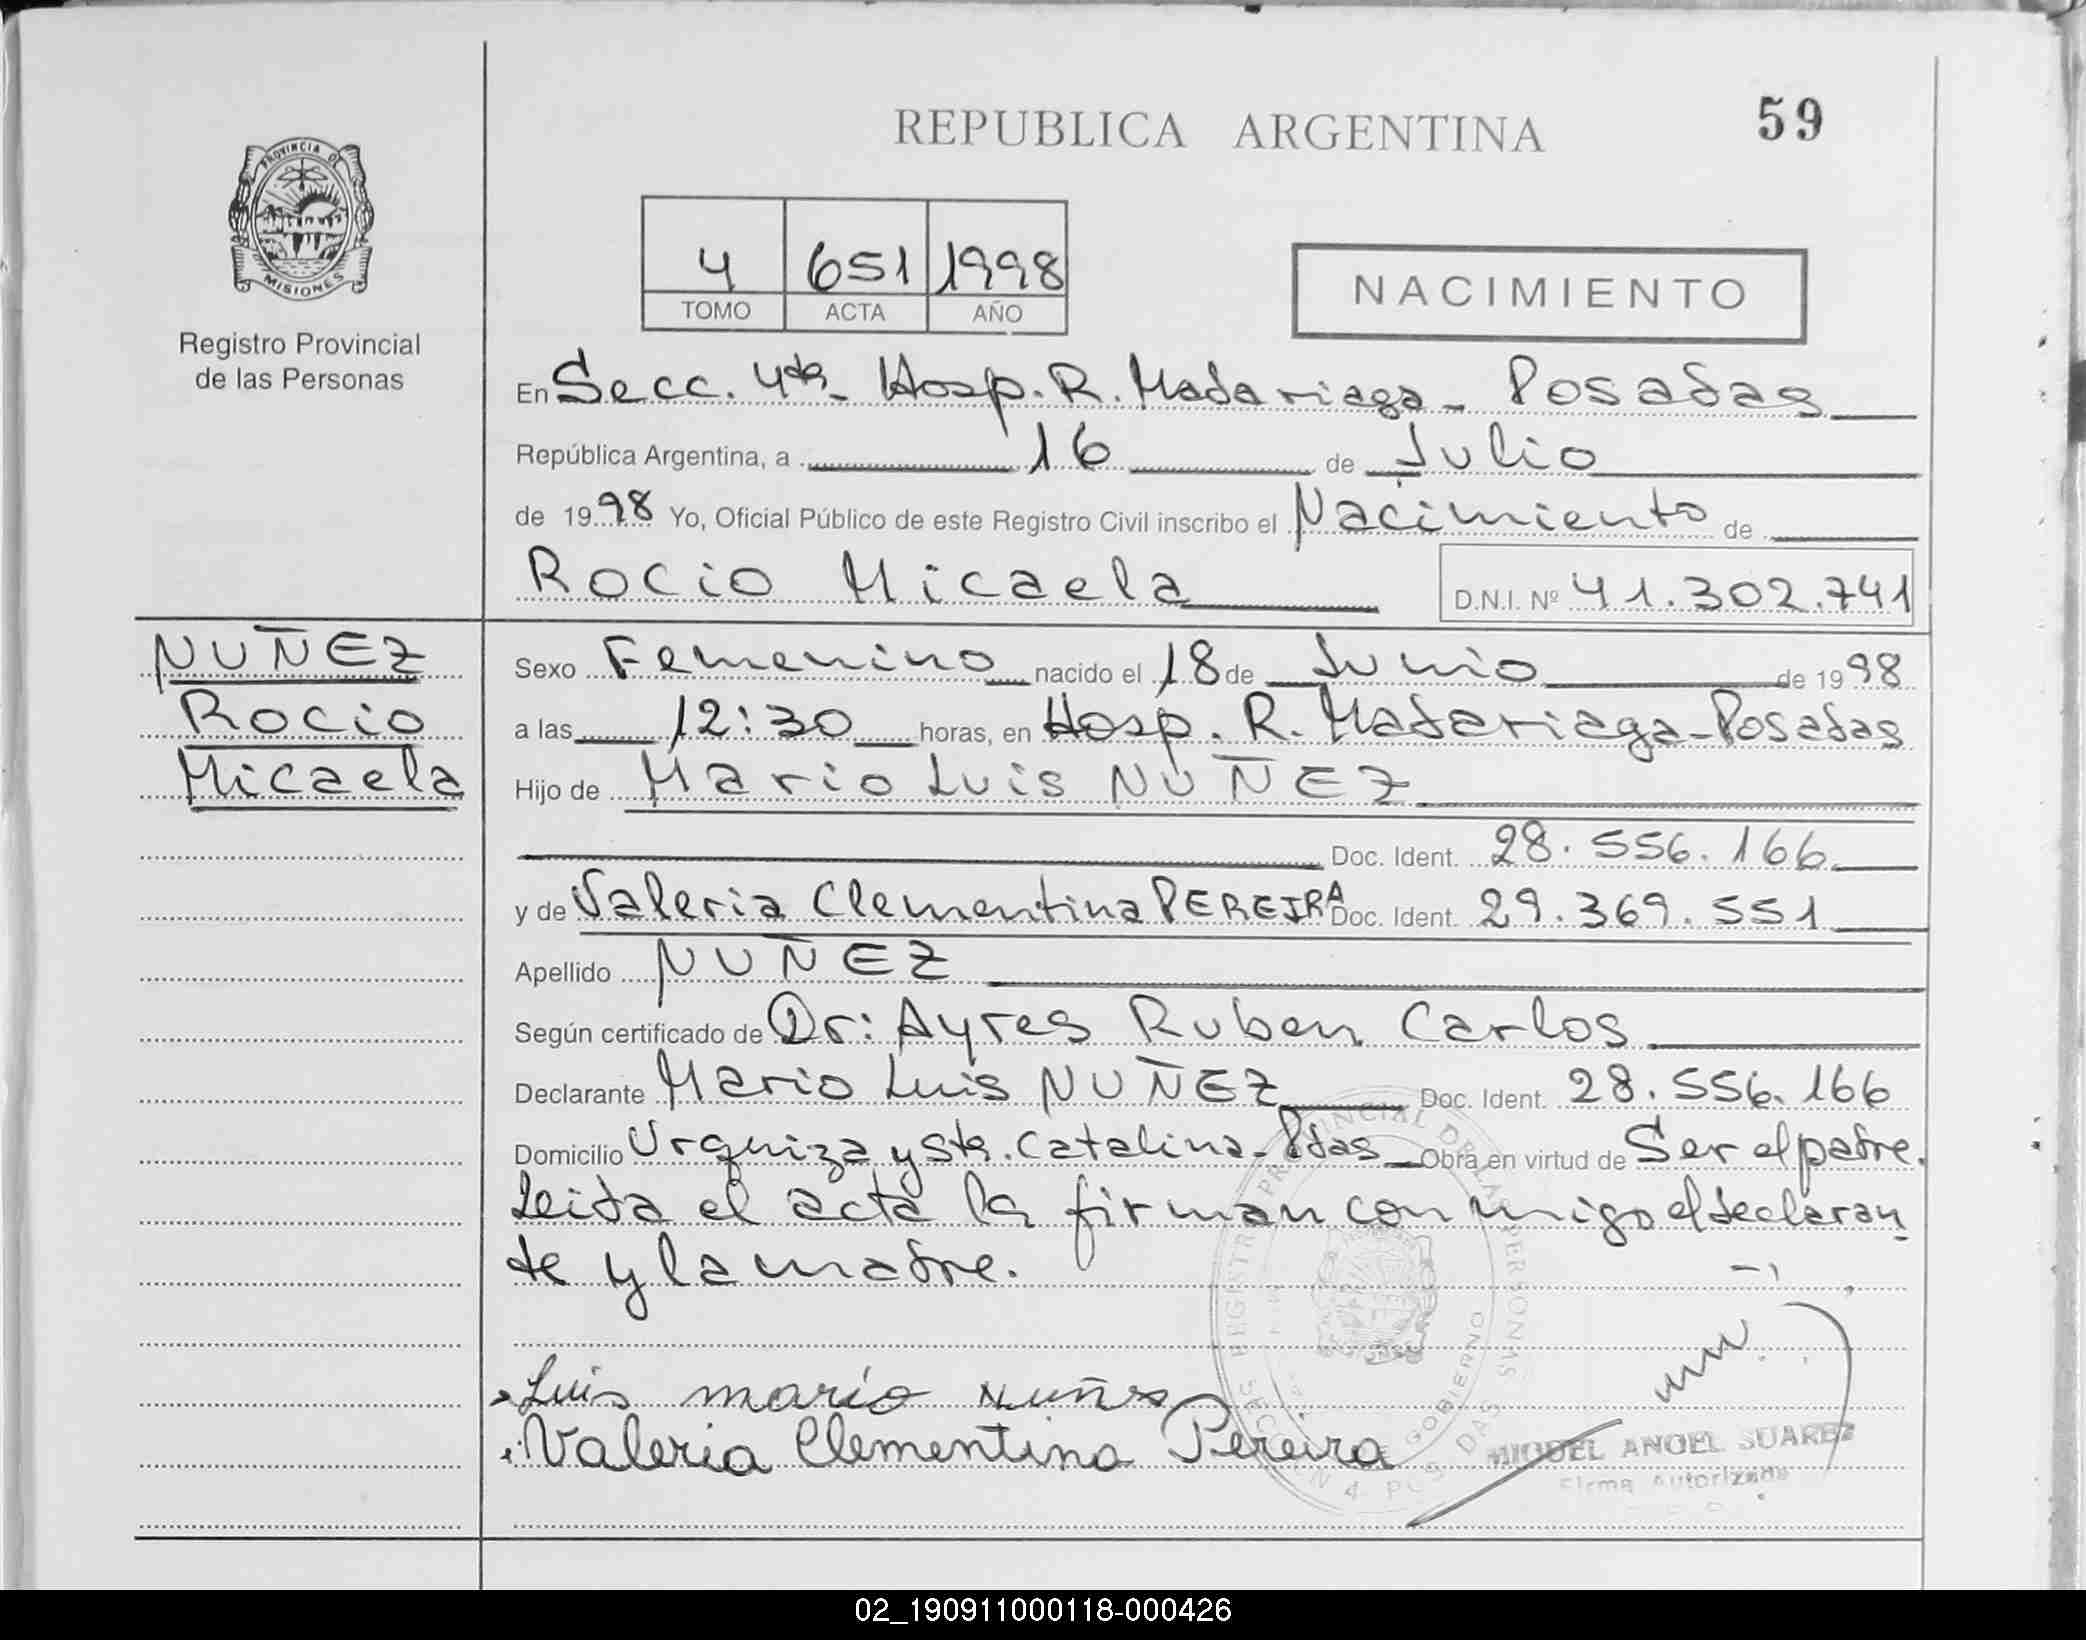 REPUBLICA ARGENTINA
59
PROVINCIA DE
MISIONES
Registro Provincial
de las Personas
4 651 1998
TOMO ACTA AÑO
NACIMIENTO
En Secc. 4ta Hosp. R. Madariaga - Posadas
República Argentina, a 16 de Julio
de 1998 Yo, Oficial Público de este Registro Civil inscribo el Nacimiento de
Rocio Micaela D.N.I. Nº 41.302.741
NUÑEZ
Rocio
Micaela
Sexo Femenino nacido el 18 de Junio de 1998
a las 12:30 horas, en Hosp. R. Madariaga - Posadas
Hijo de Mario Luis NUÑEZ
Doc. Ident. 28.556.166
y de Valeria Clementina PEREIRA Doc. Ident. 29.369.551
Apellido NUÑEZ
Según certificado de Dr: Ayres Ruben Carlos
Declarante Mario Luis NUÑEZ Doc. Ident. 28.556.166
Domicilio Urquiza y Sta. Catalina - Pdas Obra en virtud de Ser el padre.
Leida el acta la firman conmigo el declaran
te y la madre.
Luis mario nuñez
Valeria Clementina Pereira
MIGUEL ANGEL SUAREZ
Firma Autorizada
02_190911000118-000426